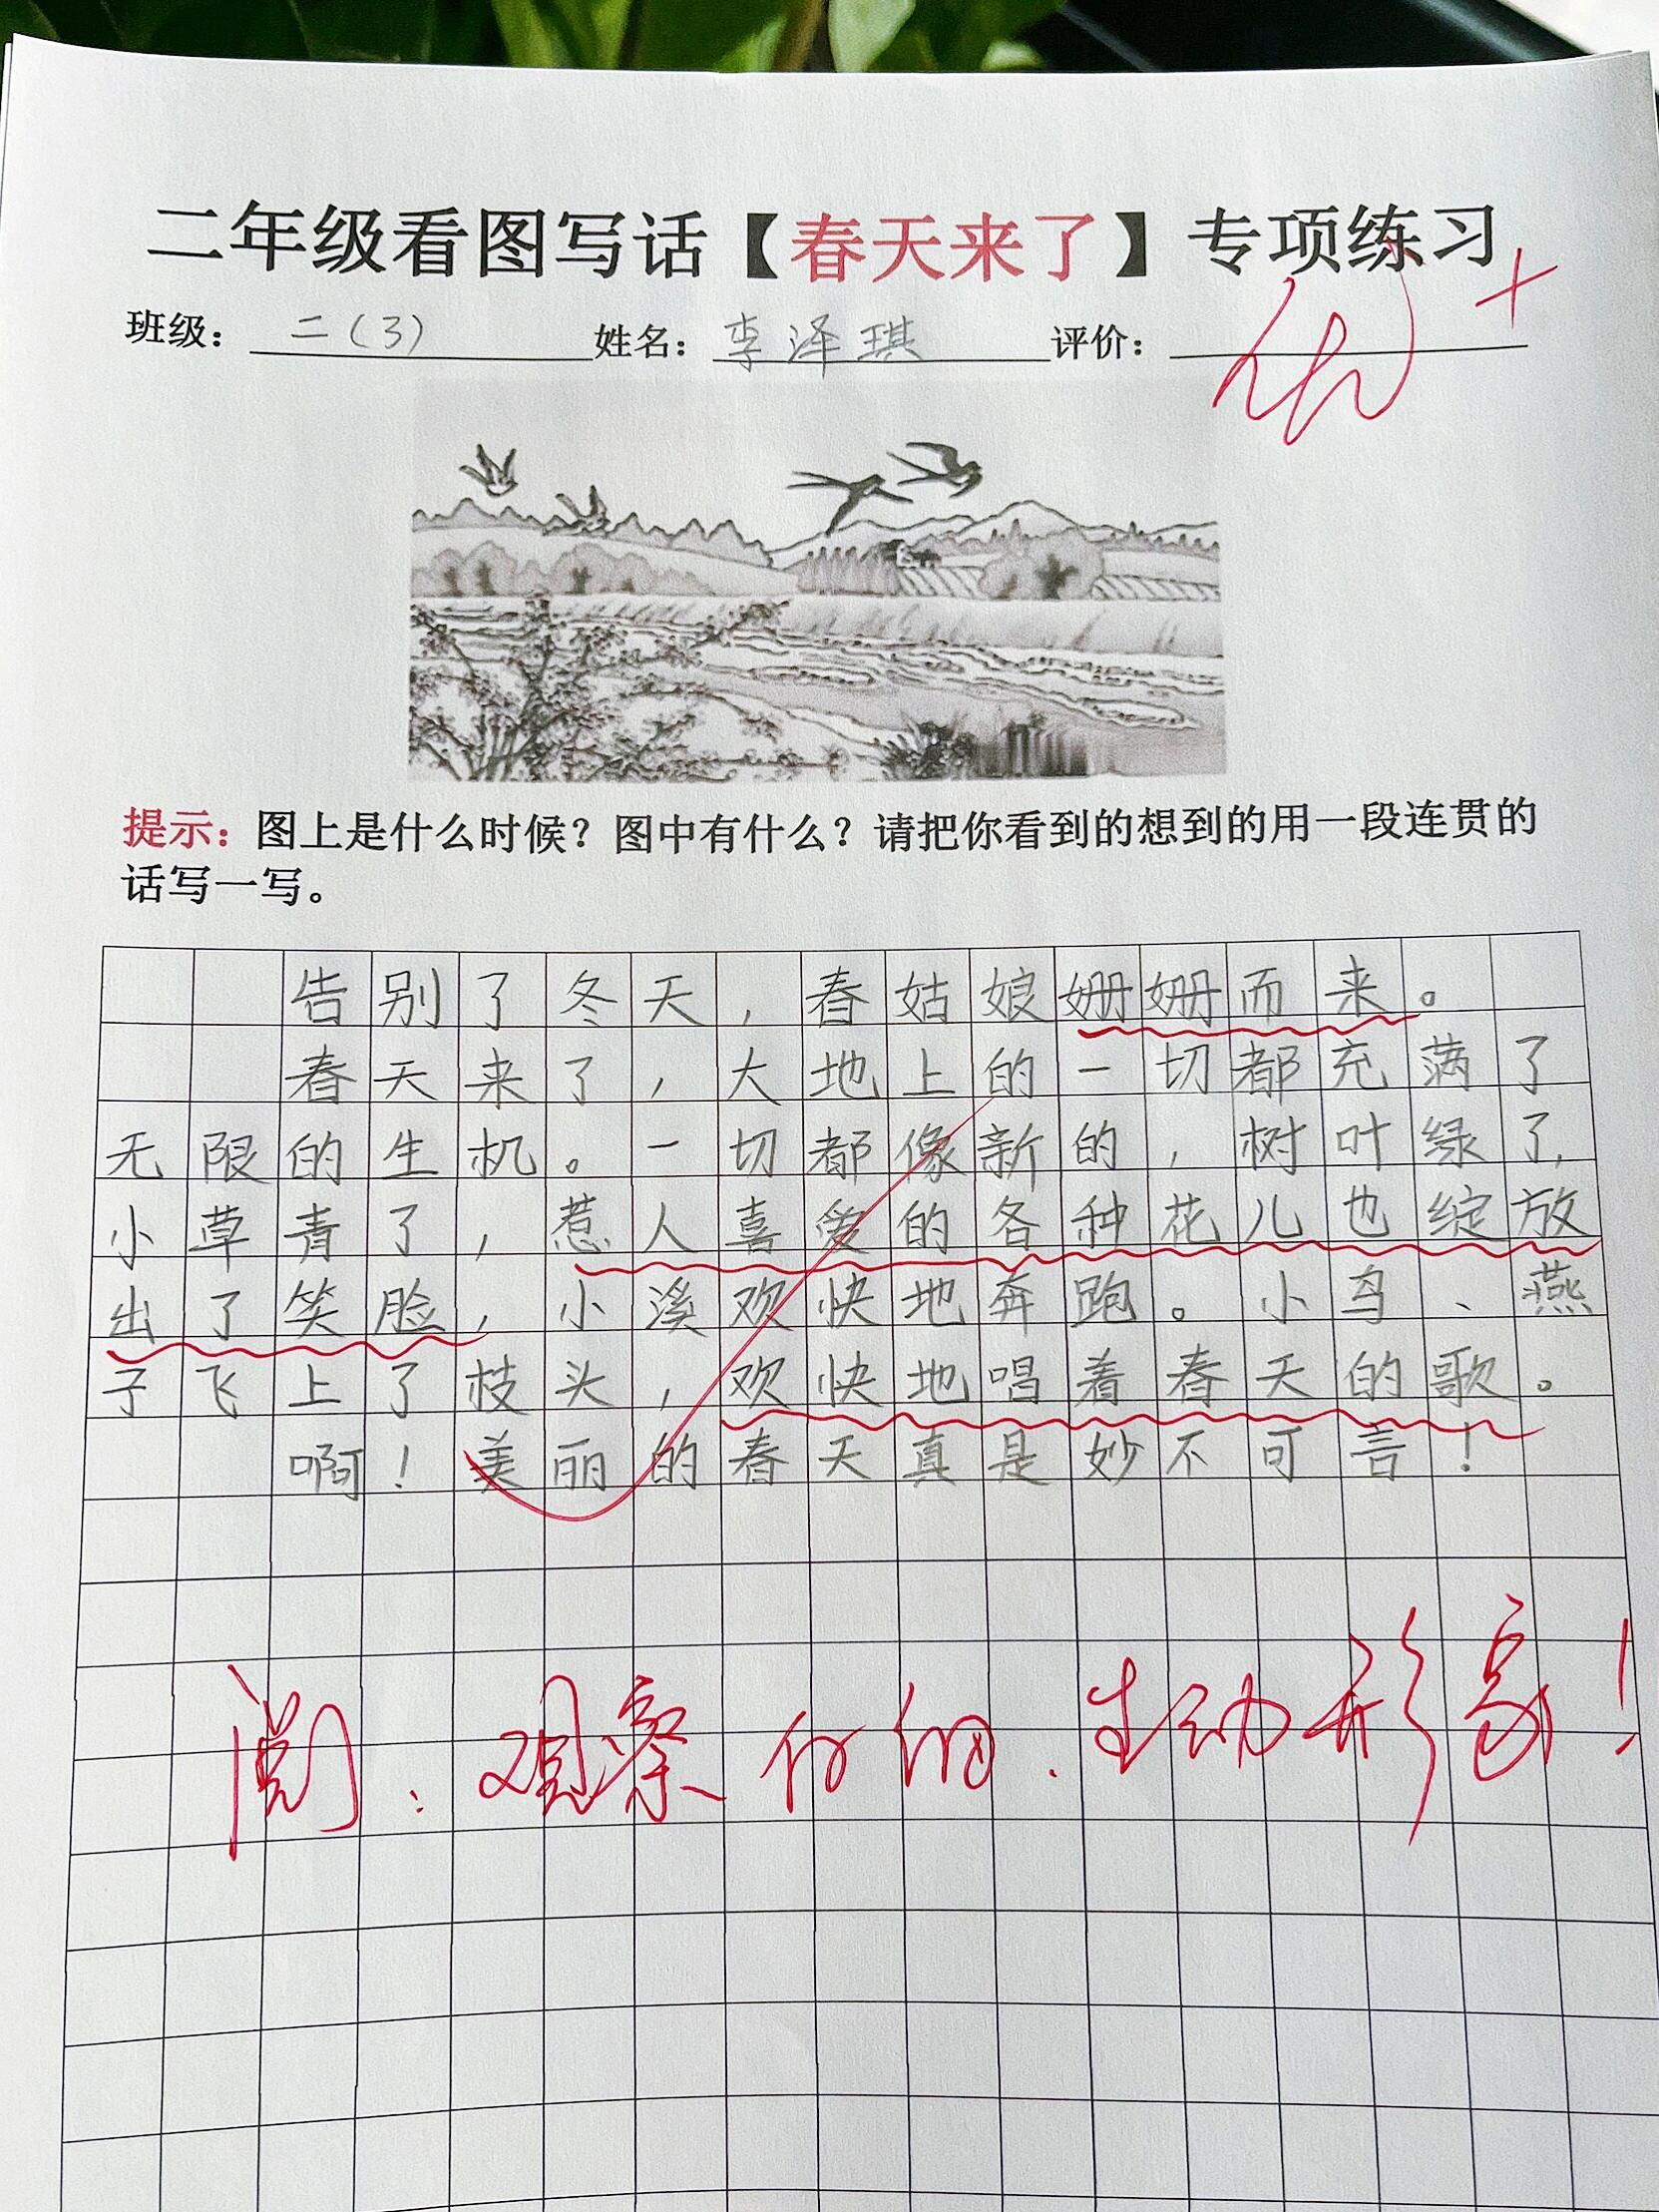 二年级看图写话【春天来了】专项练习
班级：二（3） 姓名：李泽琪 评价：优+
提示：图上是什么时候？图中有什么？请把你看到的想到的用一段连贯的
话写一写。
告别了冬天，春姑娘姗姗而来。
春天来了，大地上的一切都充满了
无限的生机。一切都像新的，树叶绿了，
小草青了，惹人喜爱的各种花儿也绽放
出了笑脸，小溪欢快地奔跑。小鸟、燕
子飞上了枝头，欢快地唱着春天的歌。
啊！美丽的春天真是妙不可言！
阅：观察仔细．生动形象！